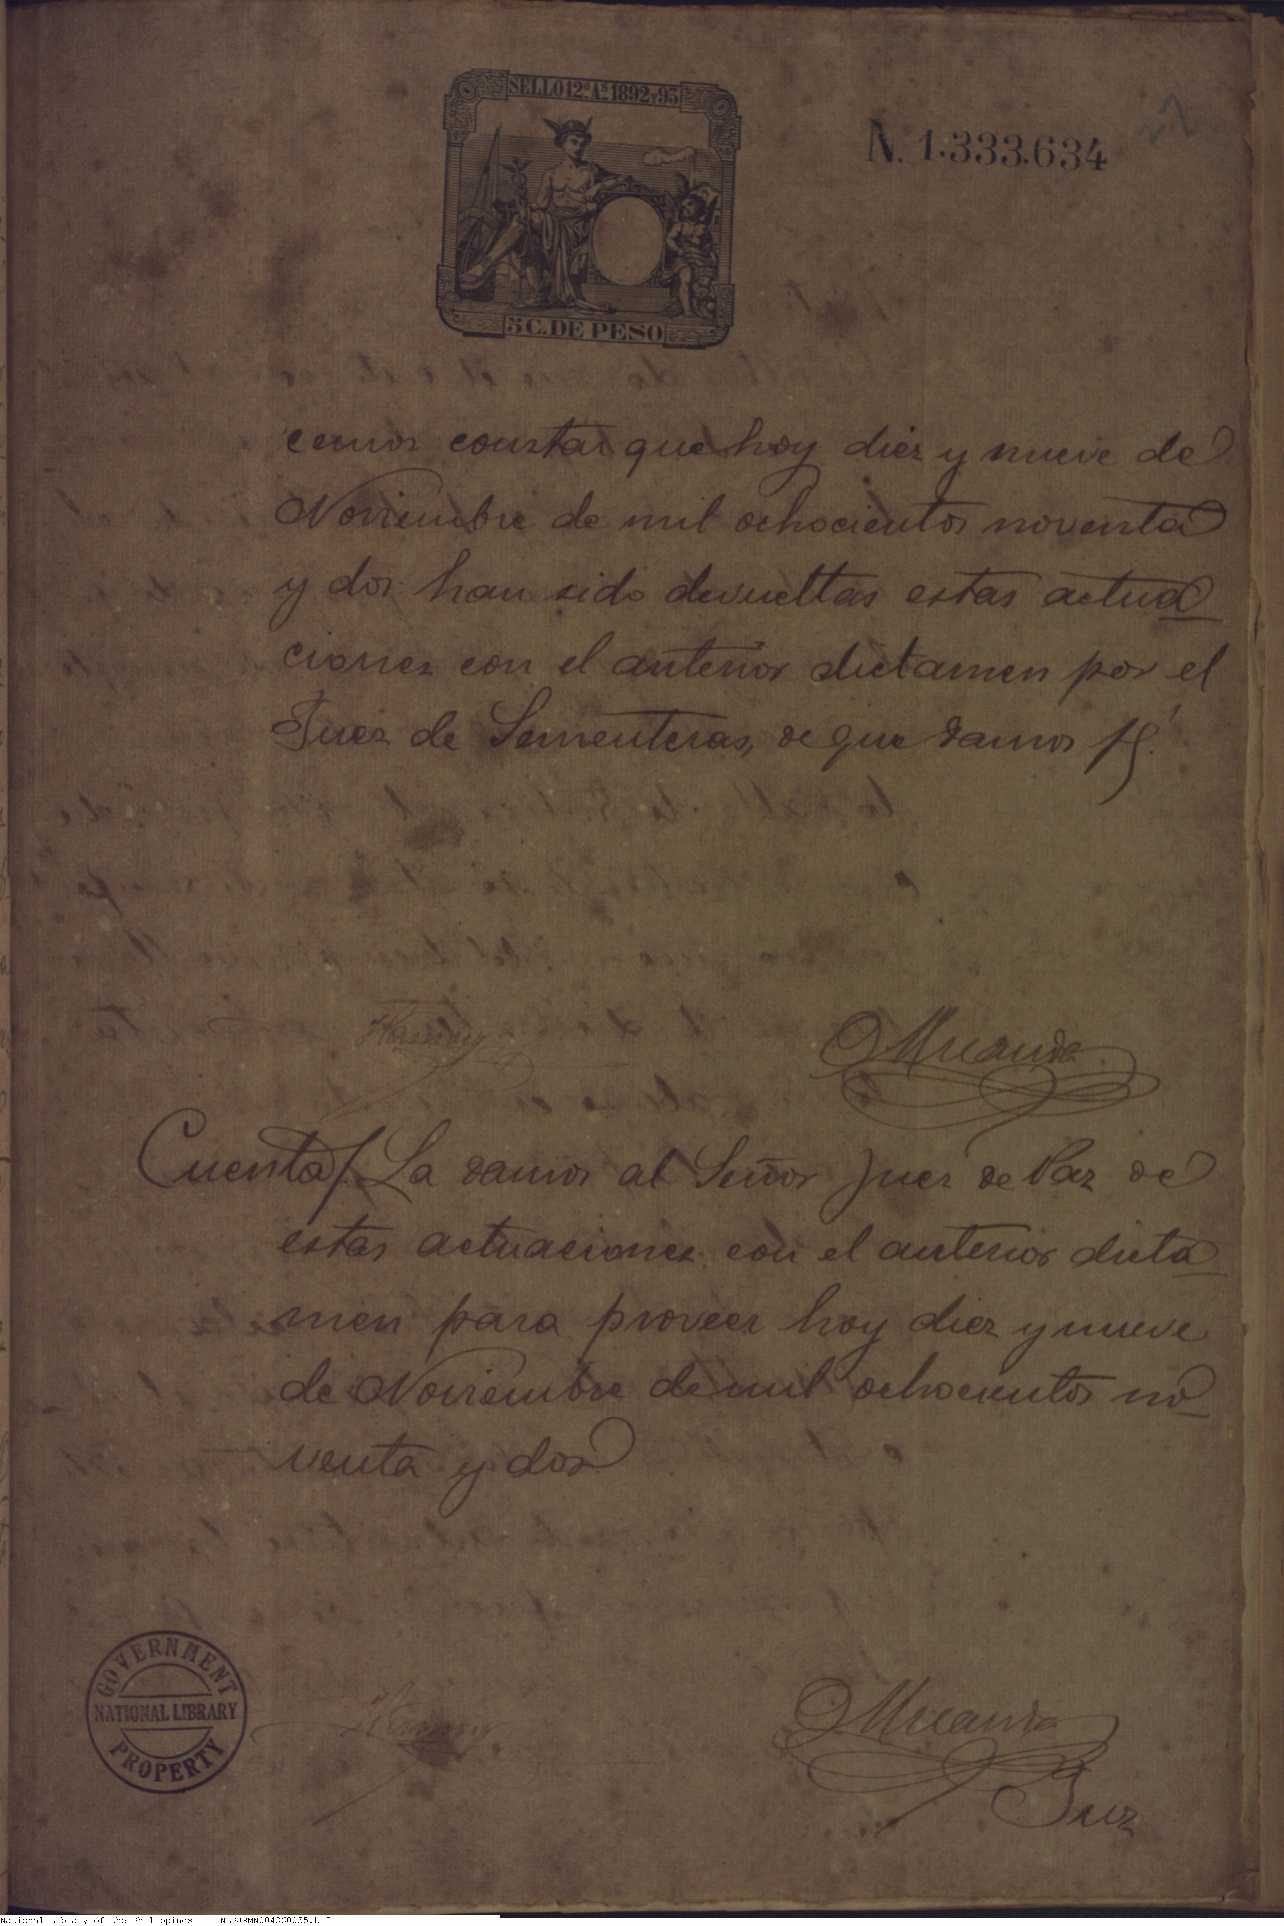 SELLO 12º Aˢ 1892 Y 93
N. 1.333.634
5 C. DE PESO
cemos constar que hoy diez y nueve de
Noviembre de mil ochocientos noventa
y dos han sido devueltas estas actua
ciones con el anterior dictamen por el
Juez de Sementeras, de que damos fé.
Miranda
Cuenta/. La damos al Señor Juez de Paz de
estas actuaciones con el anterior dicta
men para proveer hoy diez y nueve
de Noviembre de mil ochocientos no
venta y dos
GOVERNMENT
NATIONAL LIBRARY
PROPERTY
Miranda
Juez
National Library of the Philippines